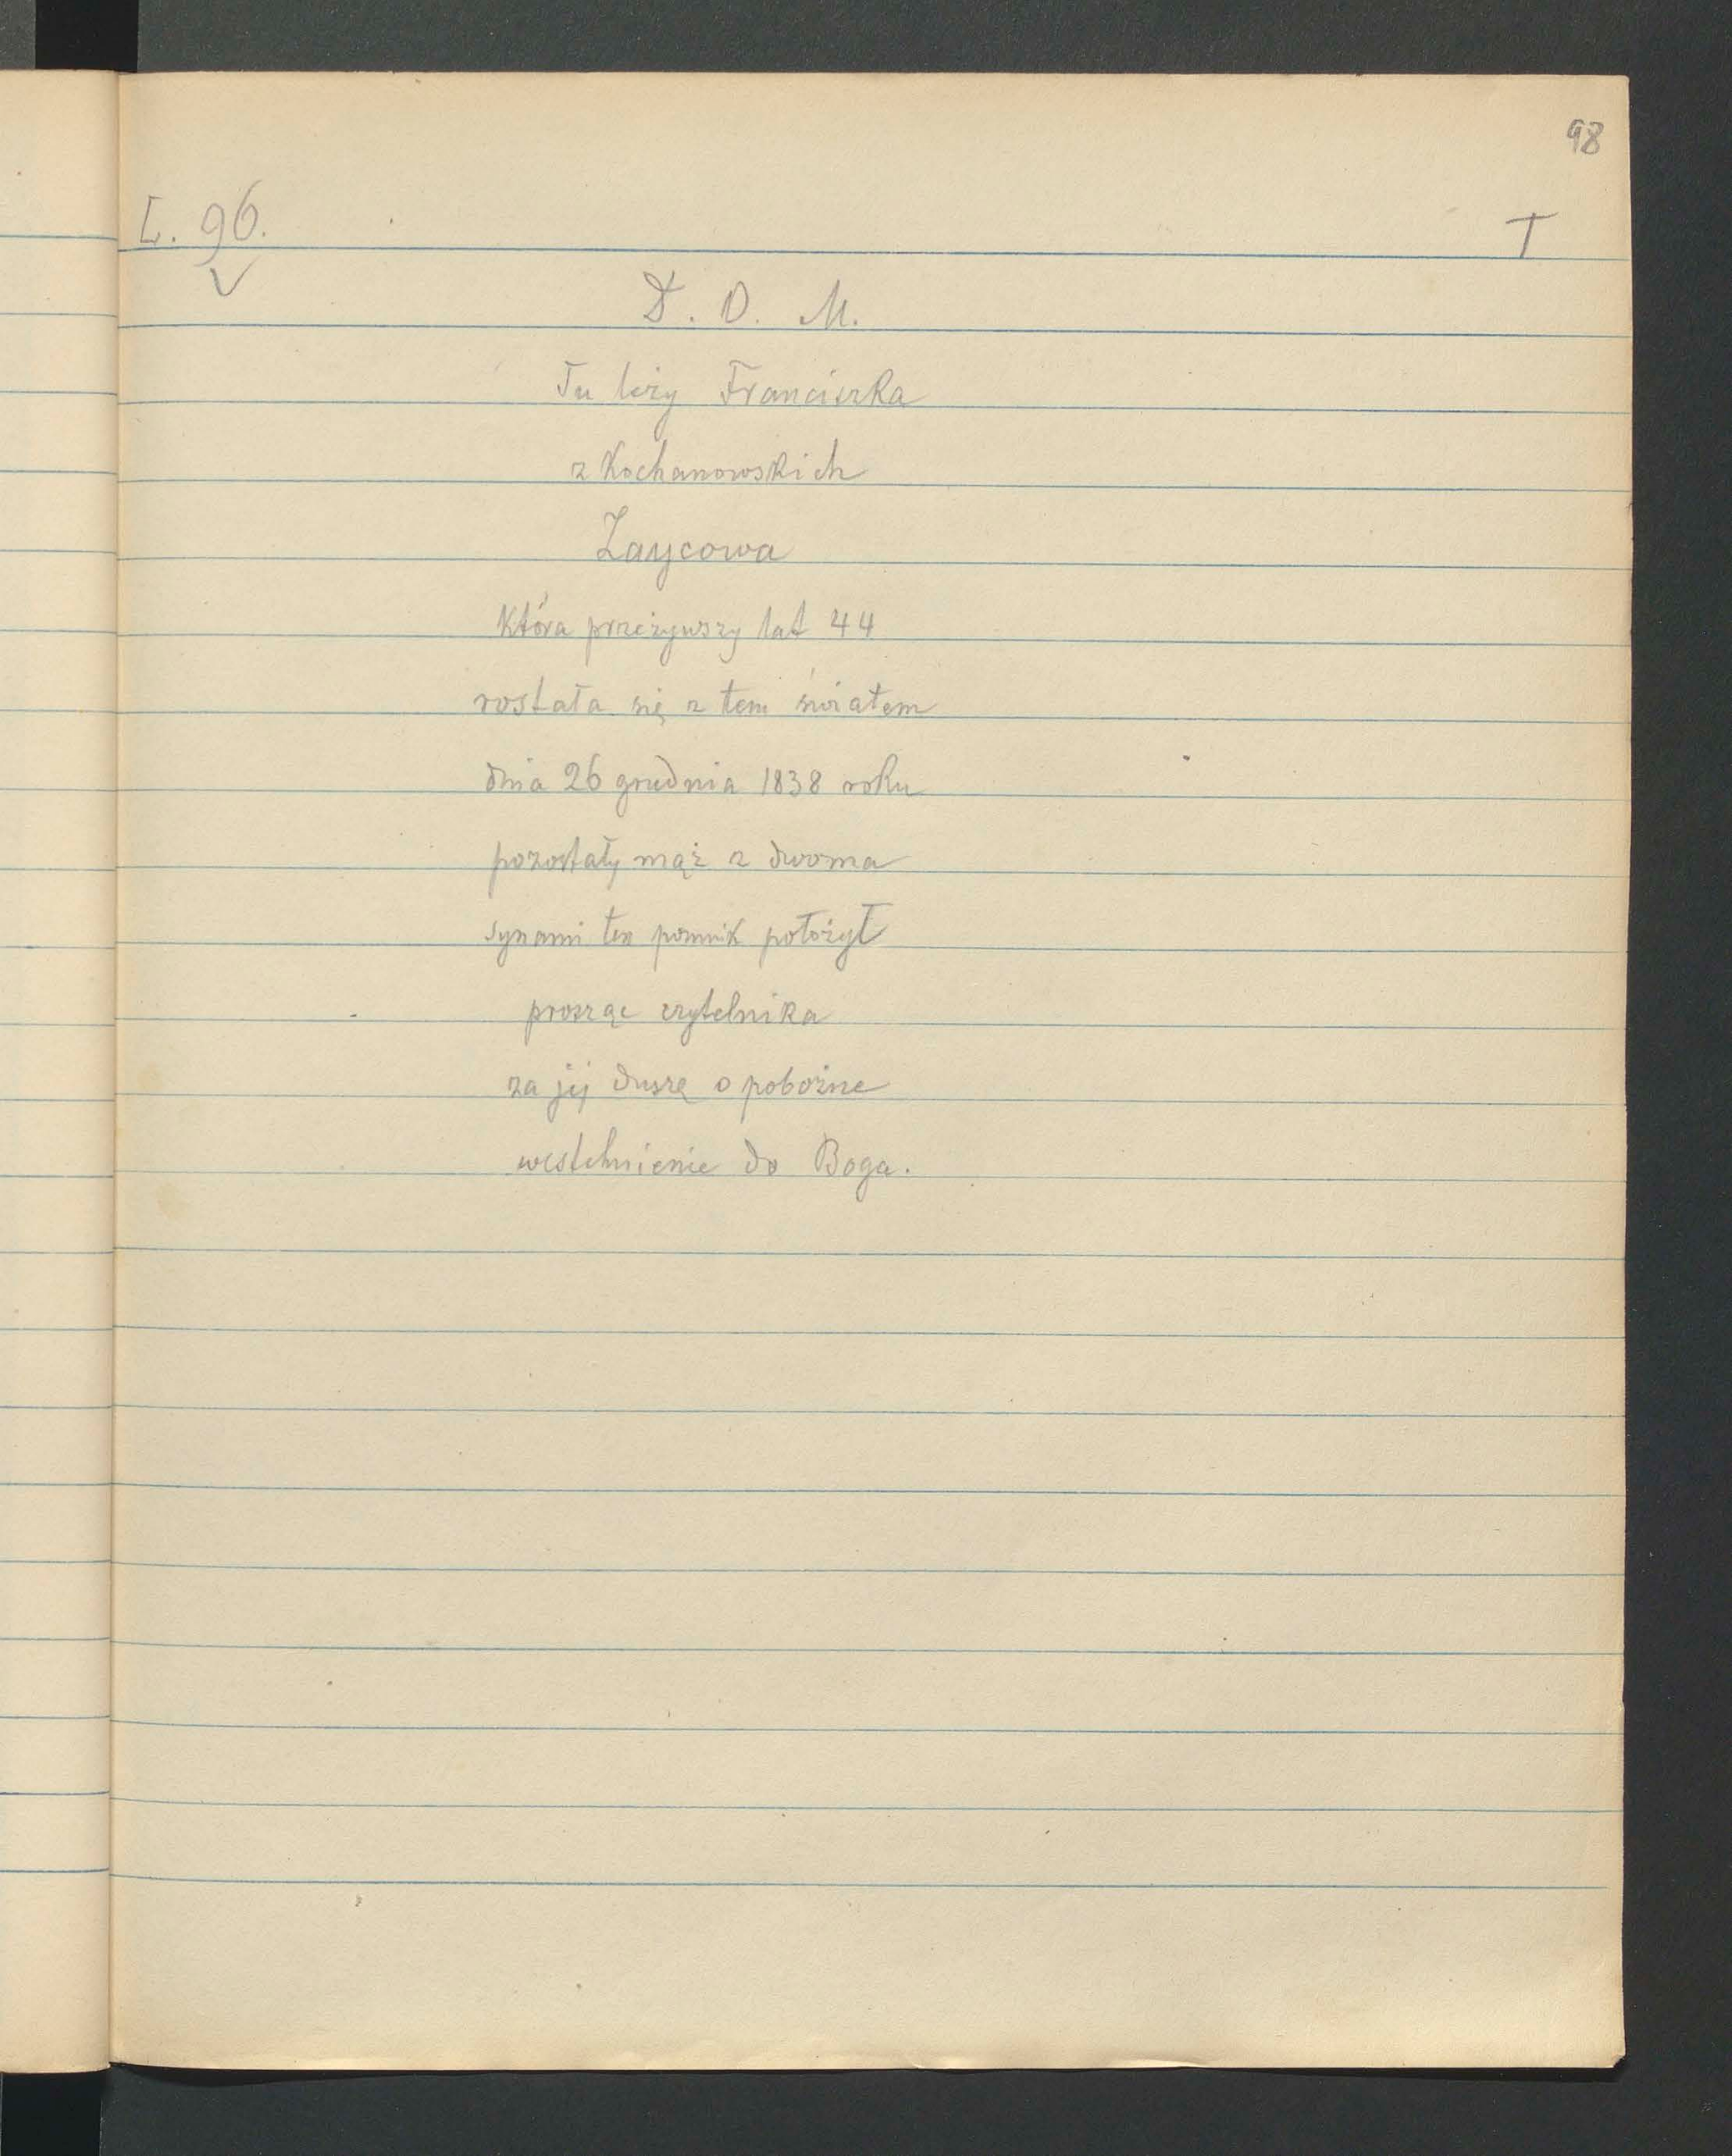 98
L. 96.
T
D. O. M.
Tu leży Franciszka
z Kochanowskich
Zaycowa
Która przeżywszy lat 44
rostała się z tem światem
dnia 26 grudnia 1838 roku
pozostały mąż z dwoma
synami ten pomnik położył
prosząc czytelnika
za jej duszę o pobożne
westchnienie do Boga.